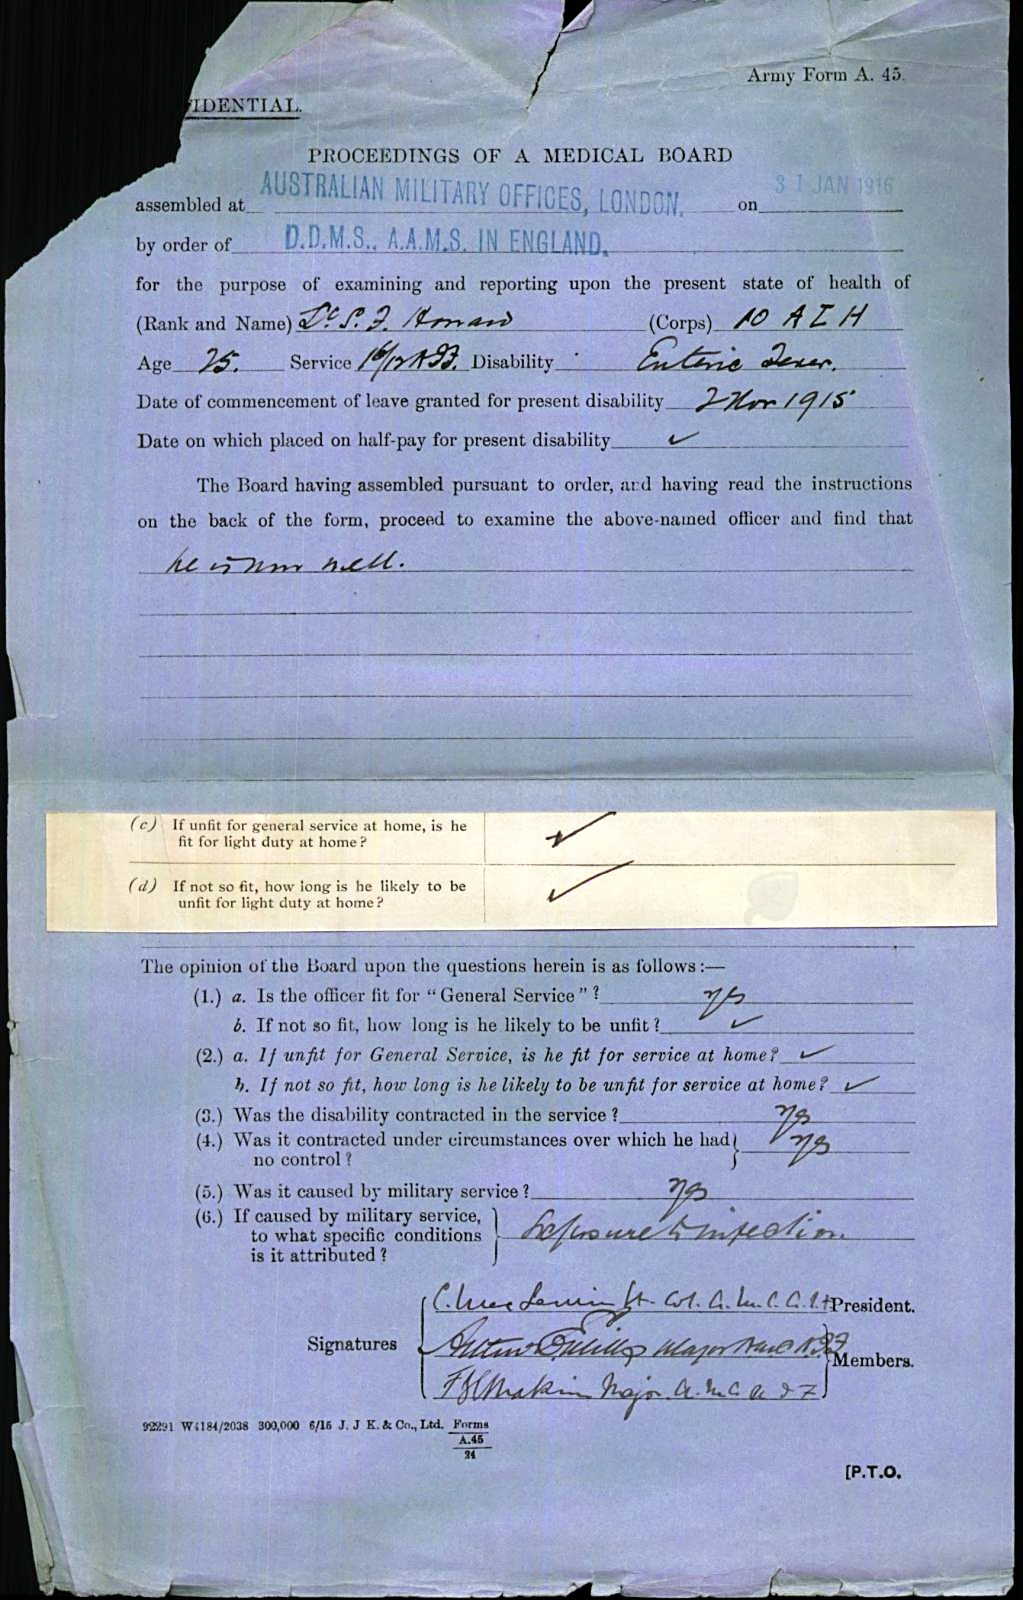 Army Form A. 45.
IDENTIAL.
PROCEEDINGS OF A MEDICAL BOARD
assembled at AUSTRALIAN MILITARY OFFICES, LONDON. on 31 JAN 1916
by order of D.D.M.S., A.A.M.S. IN ENGLAND.
for the purpose of examining and reporting upon the present state of health of
(Rank and Name) Lt S. F. (Corps) 10 A L H
Age 25. Service Disability Enteric Fever.
Date of commencement of leave granted for present disability 2 Nov 1915
Date on which placed on half-pay for present disability ✓
The Board having assembled pursuant to order, and having read the instructions
on the back of the form, proceed to examine the above-named officer and find that
he is now well.
(c) If unfit for general service at home, is he ✓
fit for light duty at home?
(d) If not so fit, how long is he likely to be ✓
unfit for light duty at home?
The opinion of the Board upon the questions herein is as follows:—
(1.) a. Is the officer fit for "General Service"? yes
b. If not so fit, how long is he likely to be unfit? ✓
(2.) a. If unfit for General Service, is he fit for service at home? ✓
b. If not so fit, how long is he likely to be unfit for service at home? ✓
(3.) Was the disability contracted in the service? yes
(4.) Was it contracted under circumstances over which he had yes
no control?
(5.) Was it caused by military service? yes
(6.) If caused by military service,
to what specific conditions Exposure to infection.
is it attributed?
Lt. Col. A.M.C. A.I.F President.
Signatures Major
Members.
Makin Major A.M.C. A I F
92291 W4184/2038 300,000 6/15 J. J K. & Co., Ltd. Forms
A.45
24
[P.T.O.